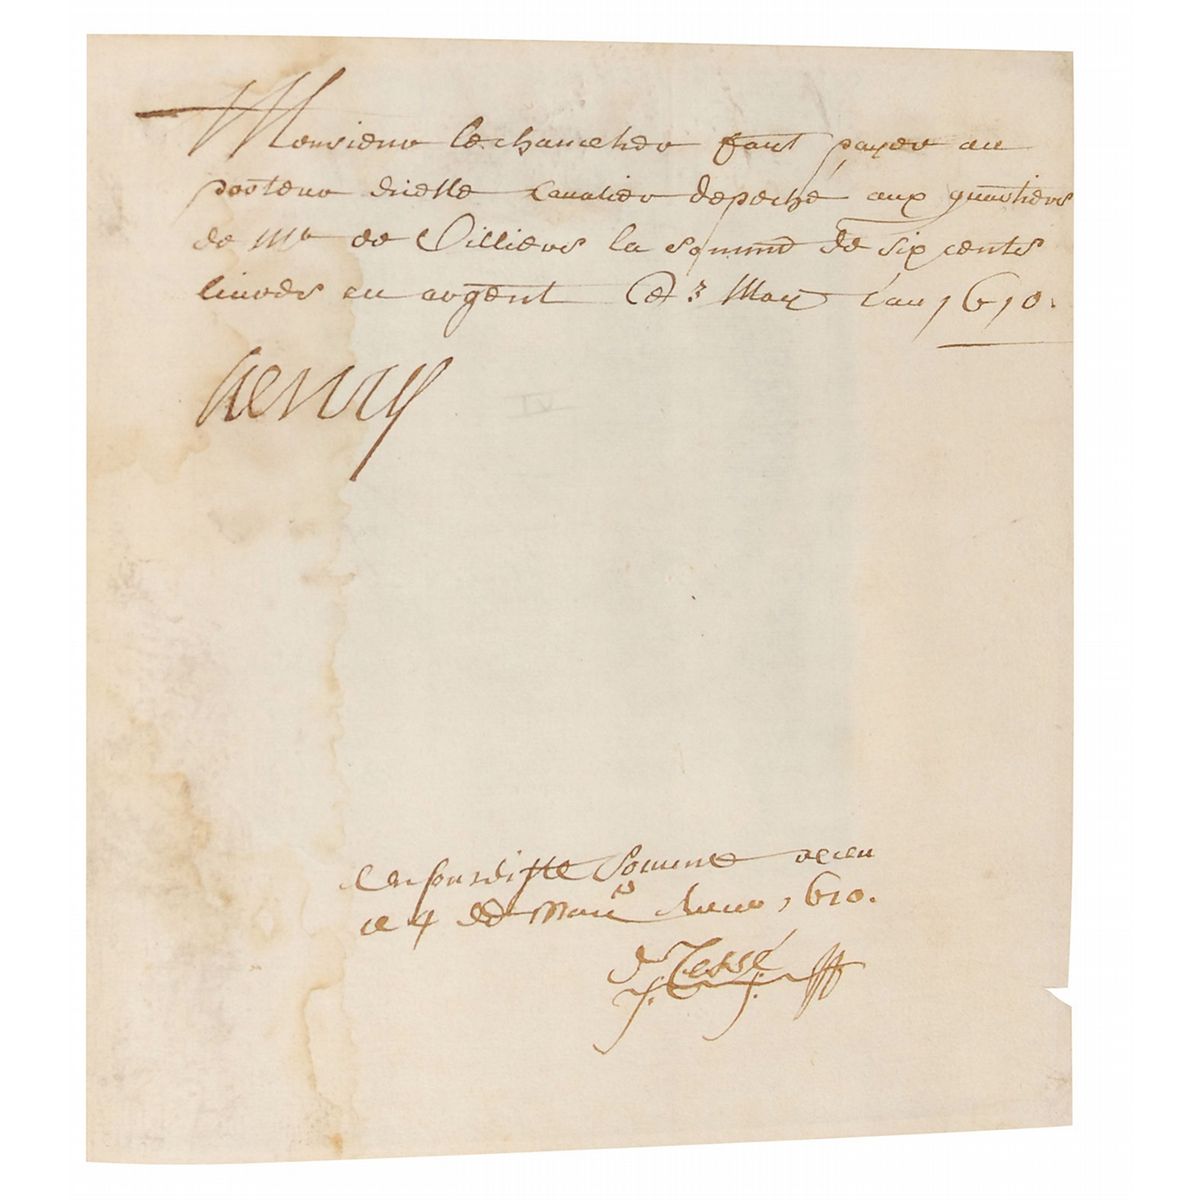 Monsieur le chancelier fault payer au
porteur dicelle Cauallier depeché aux quartiers
de Mr de Villiers la somme de six cents
liures en argent Ce 3 May l'an 1610.
henry
VI
susditte somme receu
ce 4 de May 1610.
de Tessé